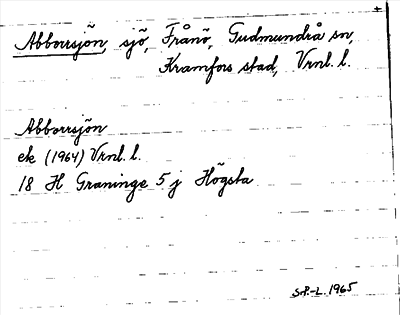 Abborrsjön, sjö, Frånö, Gudmundrå sn,
Kramfors stad, Vrnl. l.
Abborrsjön
ek (1964) Vrnl. l.
18 H Graninge 5 j Högsta
S.P.-L. 1965